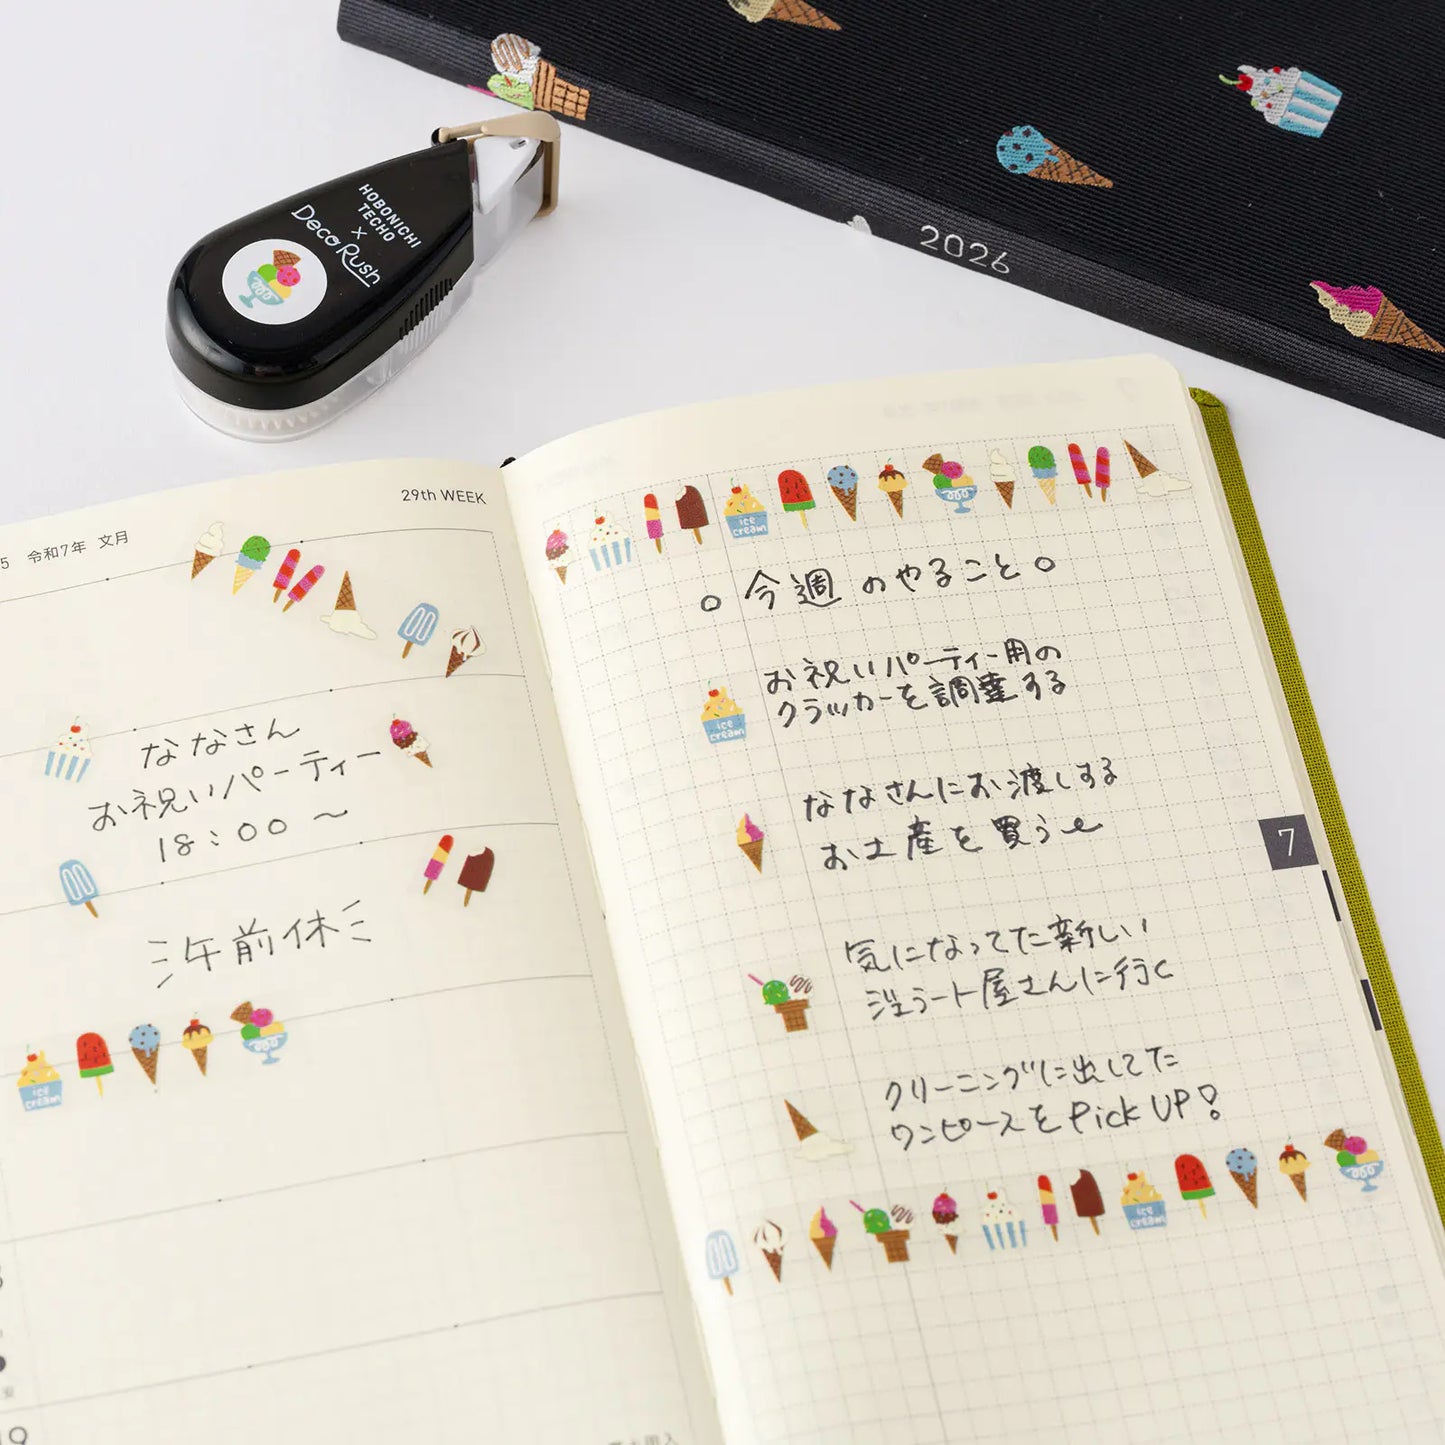 HOBONICHI
TECHO
×
Deco Rush
2026
29th WEEK
5 令和7年 文月
ice
cream
なな さん
お祝いパーティー
18:00〜
午前休
ice
cream
19
ice
cream
○ 今週のやること ○
ice
cream
お祝いパーティー用の
クラッカーを調達する
ななさんにお渡しする
お土産を買う
気になってた新しい
ジェラート屋さんに行く
クリーニングに出してた
ワンピースを Pick UP!
ice
cream
7